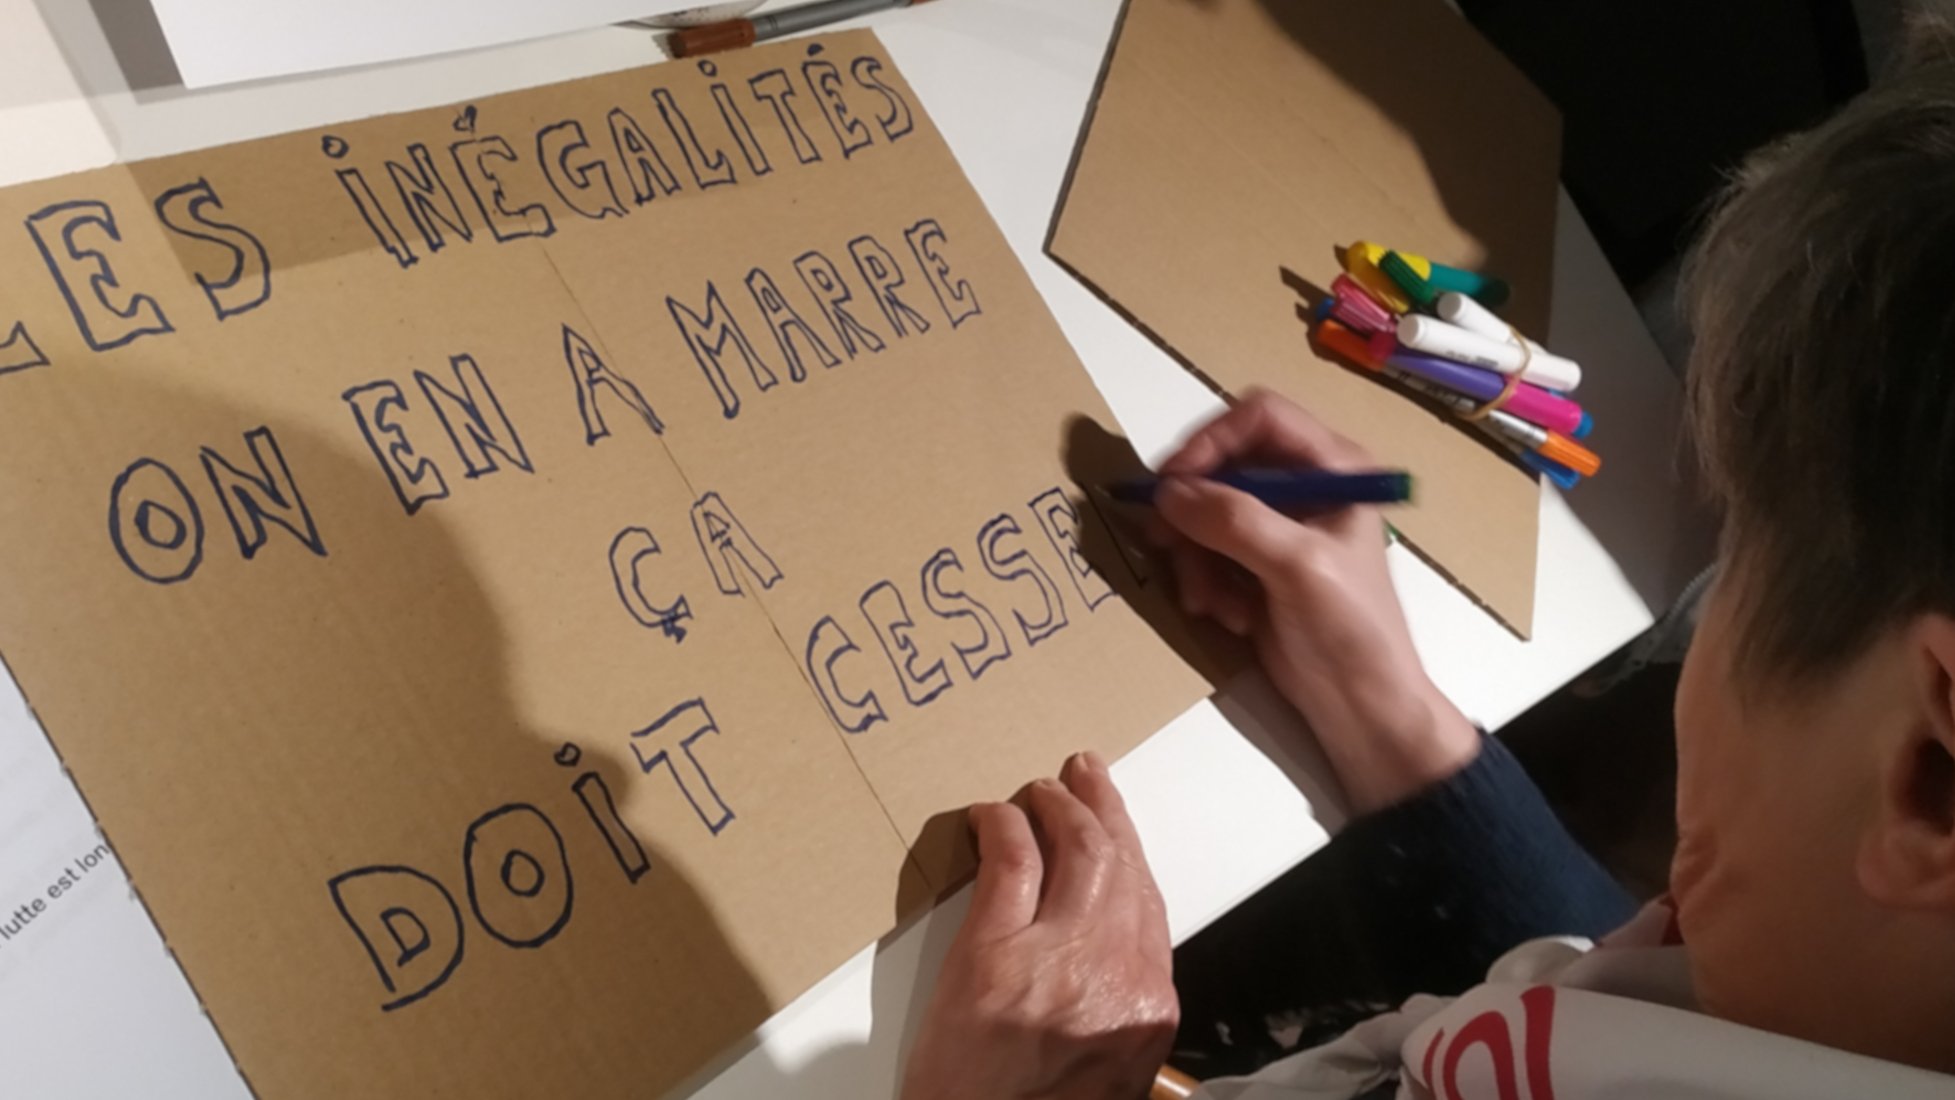 LES INÉGALITÉS
ON EN A MARRE
ÇA
DOIT CESSE
lutte est lon